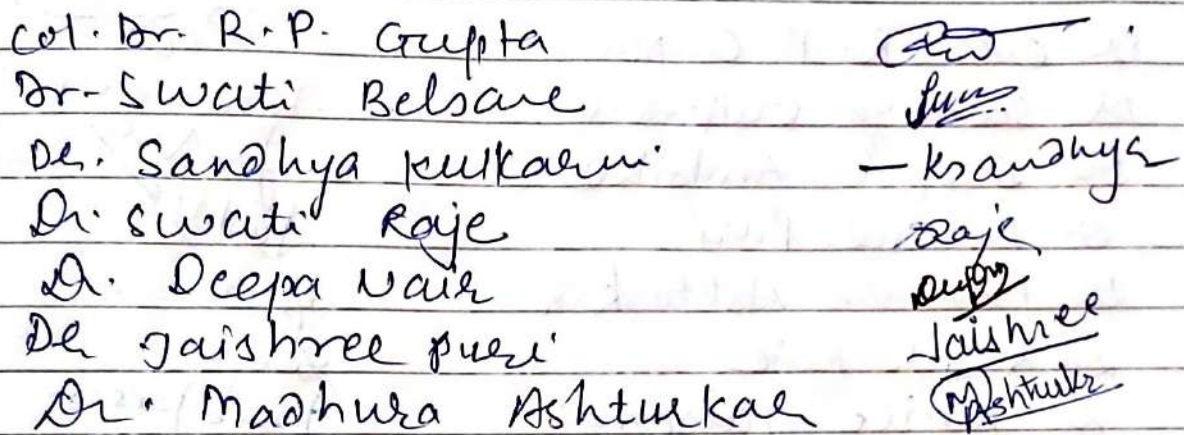 Col. Dr. R. P. Gupta
Dr. Swati Belsare
Dr. Sandhya Kulkarni — Ksandhya
Dr. Swati Raje Raje
Dr. Deepa Nair
Dr Jaishree Puri Jaishree
Dr. Madhura Ashturkar MAshturkr